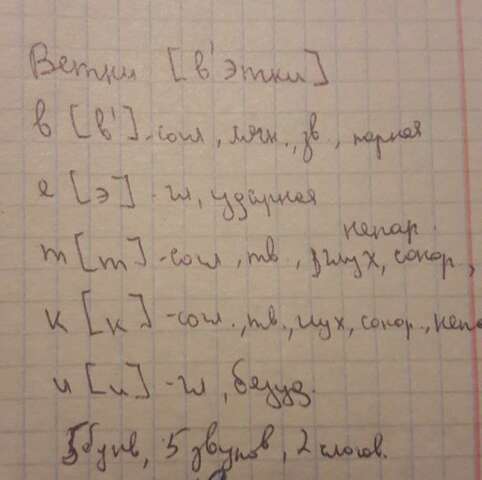 Ветки [в'этки]
в [в'] - согл, мягк., зв, парная
е [э] - гл, ударная
непар.
т [т] - согл, тв, глух, сонор,
к [к] - согл., тв., глух, сонор., непа
и [и] - гл, безуд.
5 букв, 5 звуков, 2 слогов.